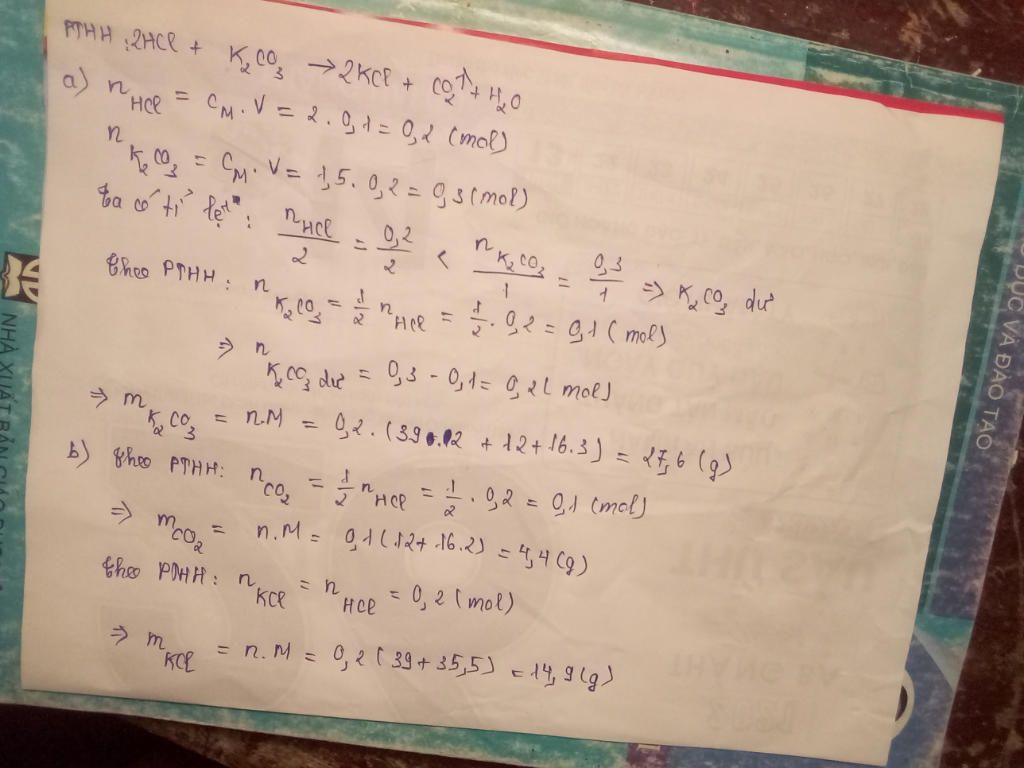 PTHH: 2HCl + K₂CO₃ → 2KCl + CO₂↑ + H₂O
a) n_HCl = C_M . V = 2 . 0,1 = 0,2 (mol)
n_K₂CO₃ = C_M . V = 1,5 . 0,2 = 0,3 (mol)
ta có tỉ lệ: n_HCl/2 = 0,2/2 < n_K₂CO₃/1 = 0,3/1 => K₂CO₃ dư
theo PTHH: n_K₂CO₃ = 1/2 n_HCl = 1/2 . 0,2 = 0,1 (mol)
=> n_K₂CO₃ dư = 0,3 - 0,1 = 0,2 (mol)
=> m_K₂CO₃ = n.M = 0,2 . (39 . 2 + 12 + 16.3) = 27,6 (g)
b) theo PTHH: n_CO₂ = 1/2 n_HCl = 1/2 . 0,2 = 0,1 (mol)
=> m_CO₂ = n.M = 0,1 (12 + 16.2) = 4,4 (g)
theo PTHH: n_KCl = n_HCl = 0,2 (mol)
=> m_KCl = n.M = 0,2 (39 + 35,5) = 14,9 (g)
NHÀ XUẤT BẢN GIÁO
DỤC VÀ ĐÀO TẠO